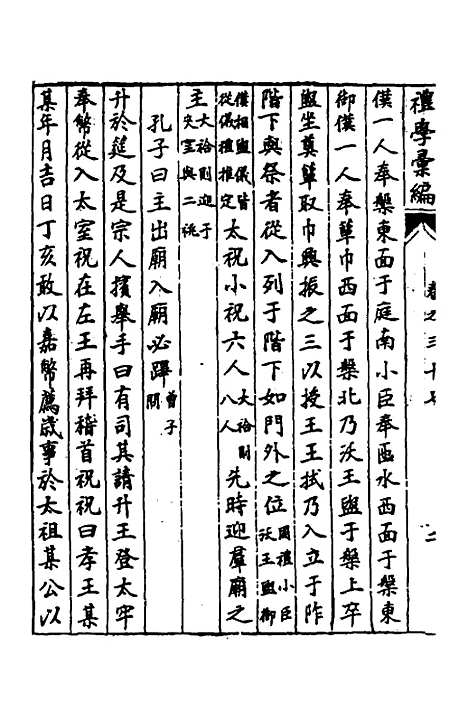 禮學彙編 卷之三十七 二
僕一人奉槃東面于庭南小臣奉匜水西面于槃東
御僕一人奉簞巾西面于槃北乃沃王盥于槃上卒
盥坐奠簞取巾興振之三以授王王拭乃入立于阼
階下與祭者從入列于階下如門外之位周禮小臣沃王盥御
僕相盥儀皆從儀禮推定太祝小祝六人大祫則八人先時迎羣廟之
主大祫則迎于夾室與二祧
孔子曰主出廟入廟必蹕曾子問
升於筵及是宗人擯舉手曰有司其請升王登太宰
奉幣從入太室祝在左王再拜稽首祝祝曰孝王某
某年月吉日丁亥敢以嘉幣薦歲事於太祖某公以